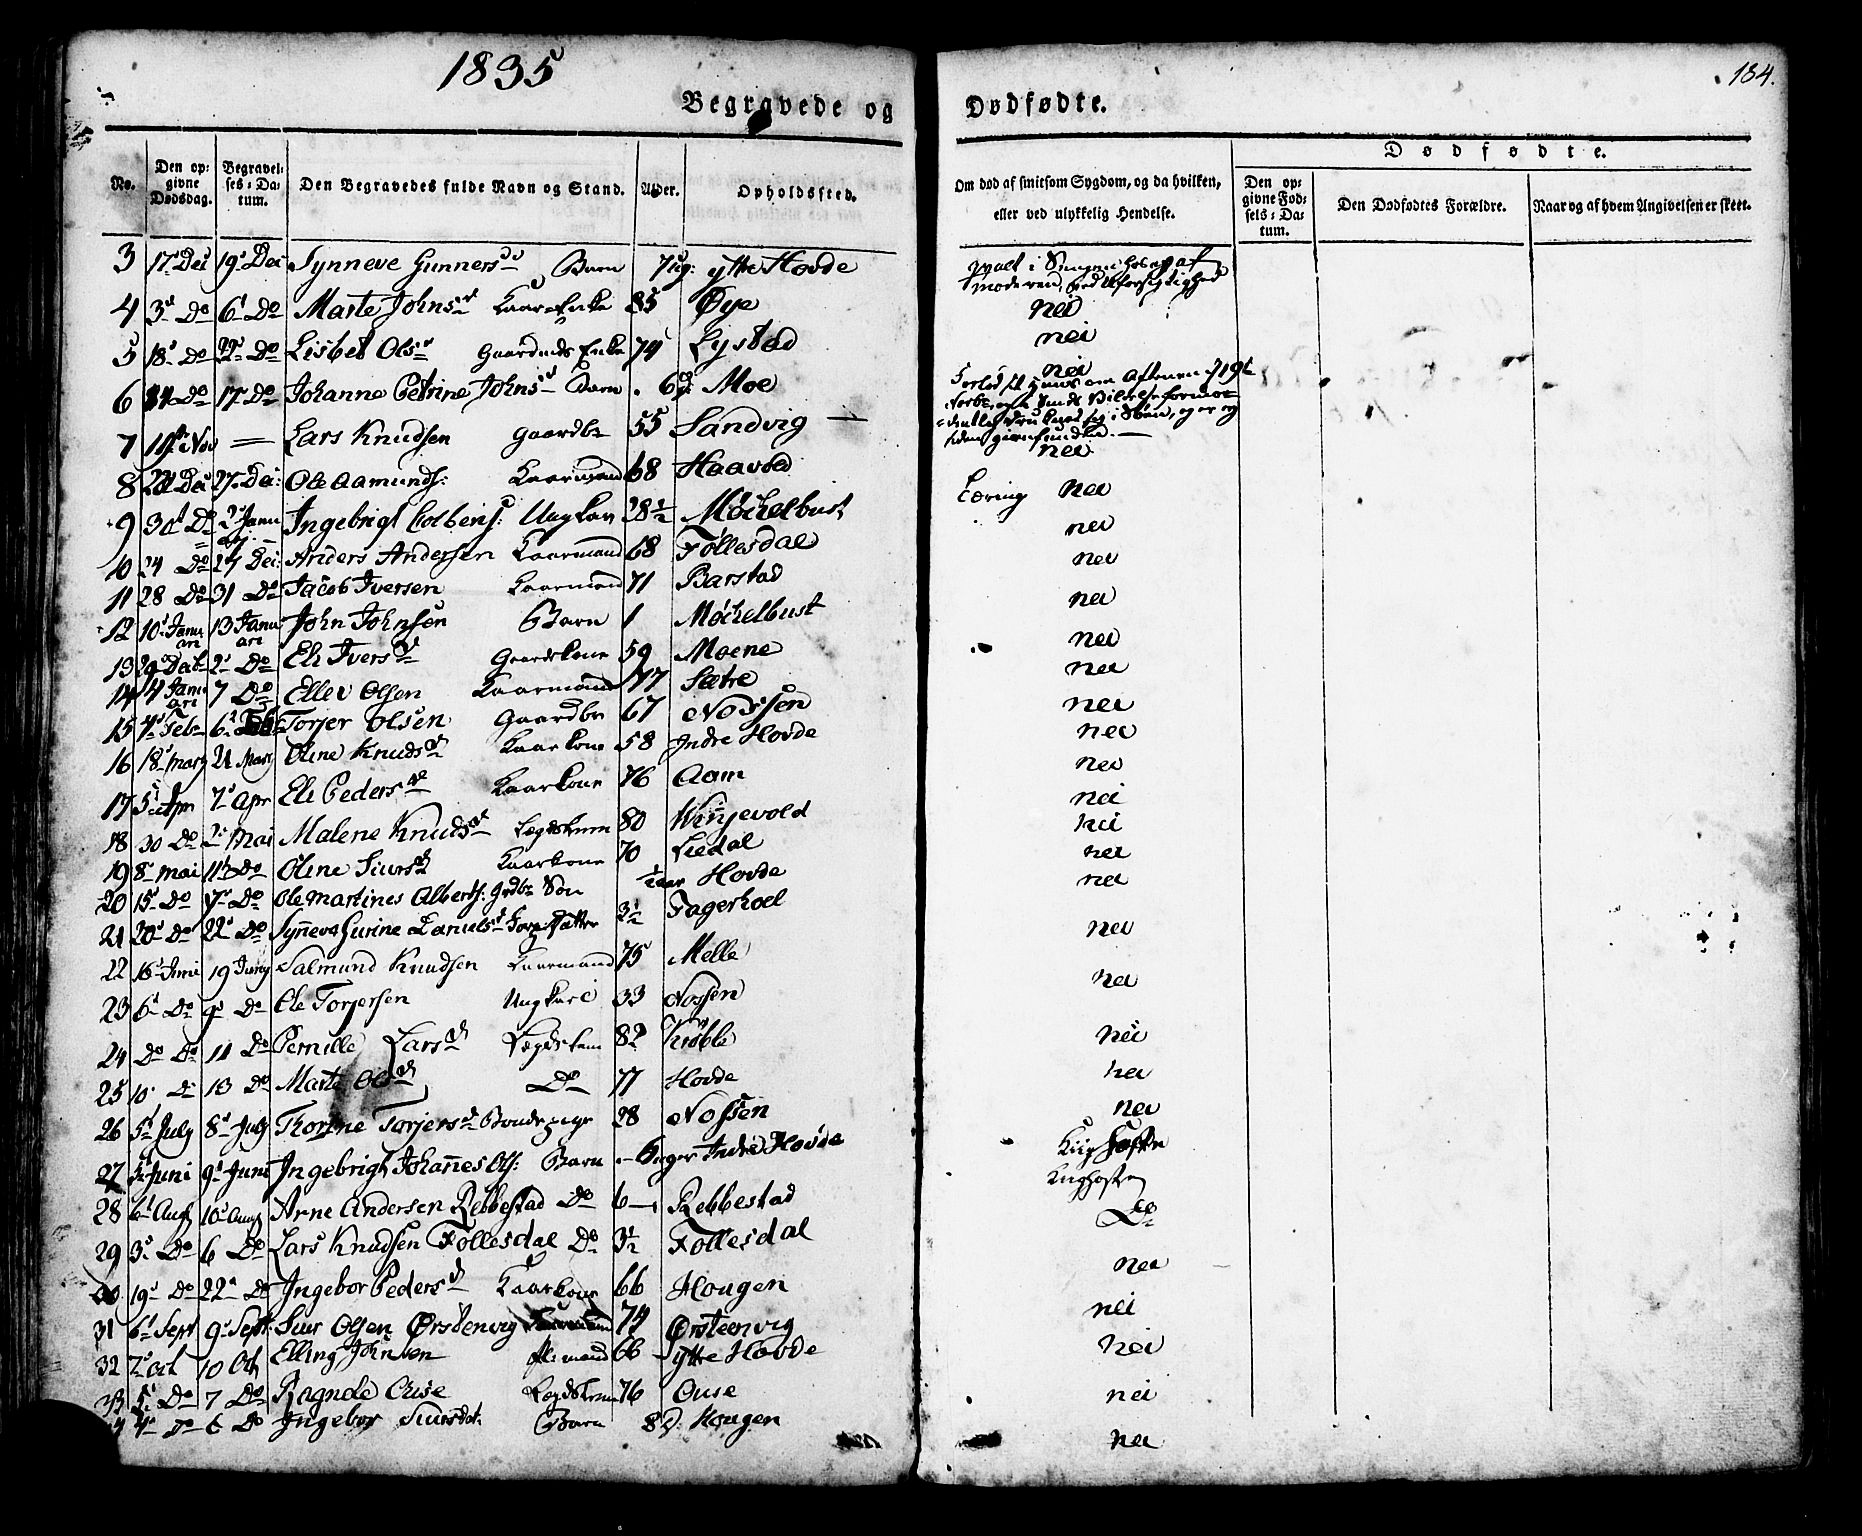 1835
184.
Begravede og Dødfødte.
No. Den opgivne Dødsdag. Begravelses-Datum. Den Begravedes fulde Navn og Stand. Alder. Opholdssted. Om død af smitsom Sygdom, og da hvilken, eller ved ulykkelig Hendelse. Dødfødte. Den opgivne Fødsels-Datum. Den Dødfødtes Forældre. Naar og af hvem Angivelsen er skeet.
3 17 Dec 19 Dec Synneve Gunners Barn 7 ug: ytre Hovde qvalt i af moderen, ved Uforsigtighed
4 3 Do 6 Do Marte Johns Kaar-Enke 85 Øye nei
5 18 Do 22 Do Lisbet Ols Gaardmds Enke 74 Lystad nei
6 Do 17 Do Johanne Petrine Johns Barn 6 Moe nei
7 Nov — Lars Knudsen Gaardbr 55 Sandvig Forlod sit Huus om Aftenen 19 druknet sig i Søen, og er ei siden gienfunden. —
8 22 Dec 27 Dec: Ole Aamunds: Kaarmand 68 Haavod nei
9 30 Do 2 Januari Ingebrigt Colbens: Ungkar 28½ Møchelbust Tæring nei
10 24 Do 27 Dec: Anders Andersen Kaarmand 68 Føllesdal nei
11 28 Do 31 Do Jacob Iversen Kaarmand 71 Barstad nei
12 10 Januari 13 Januari John Johnsen Barn 1 Møchelbust nei
13 29 Decb 2 Do Eli Ivers Gaardkone 59 Moene nei
14 4 Januari 7 Do Ellev Olsen Kaarmand 77 Sætre nei
15 4 Feb 6 Feb Torjer Olsen Gaardbr 67 Nossen nei
16 18 Marz 21 Marz Oline Knuds Kaarkone 58 Indre Hovde nei
17 5 Apr 7 Apr Eli Peders Kaarkone 76 Aam nei
18 30 Do 2 Mai Malene Knuds Lægdslem 80 Winjevold nei
19 8 Mai 11 Do Oline Siurs Kaarkone 70 Liedal nei
20 15 Do 17 Do Ole Martines Alberts: Grdbr Søn ½ aar Hovde nei
21 20 Do 22 Do Synneva Surine Daniels Datter 3½ Fagerhoel nei
22 16 Juni 19 Juny Salmund Knudsen Kaarmand 75 Melle nei
23 6 Do 9 Do Ole Torjersen Ungkarl 33 Nossen nei
24 Do Do 11 Do Pernille Lars Lægdslem 82 Krøble nei
25 10 Do 13 Do Marte Ols Do 77 Hovde nei
26 5 July 8 July Thorine Torjers Bondepige 28 Nossen nei
27 5 Juni 9 Juni Ingebrigt Johannes Ols: Barn 6 uger Indre Hovde Kiighoste
28 6 Aug 10 Aug Arne Andersen Rebbestad Do 6 Rebbestad Kiighoste
29 3 Do 6 Do Lars Knudsen Føllesdal Do 3½ Føllesdal Do
30 19 Do 22 Do Ingebor Peders Kaarkone 66 Hougen nei
31 6 Sept 9 Sept Siur Olsen Ørstenvig Kaarmand 74 Ørsteenvig nei
32 7 Oct 10 Oct Elling Johnsen mand 66 ytre Hovde nei
33 5 Do 7 Do Ragnele Ouse Lægdslem 76 Ouse nei
4 Do 6 Do Ingebor Siursdat Barn 8 D: Hougen nei